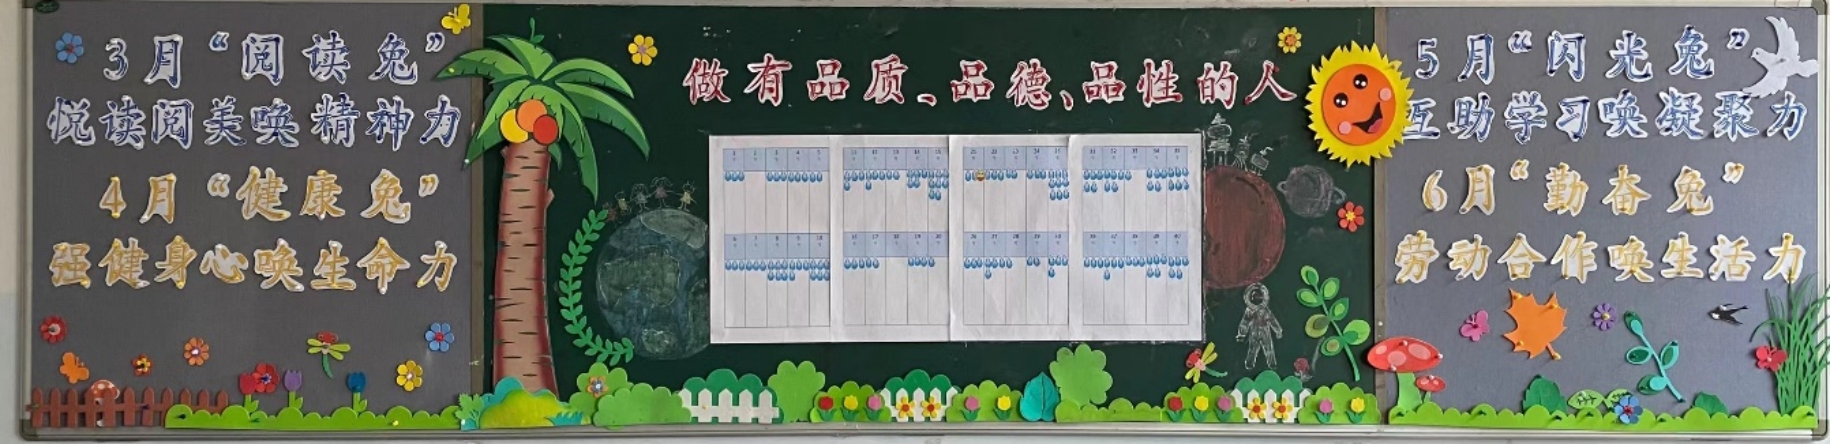 3月“阅读兔”
悦读阅美唤精神力
4月“健康兔”
强健身心唤生命力
做有品质、品德、品性的人
5月“闪光兔”
互助学习唤凝聚力
6月“勤奋兔”
劳动合作唤生活力